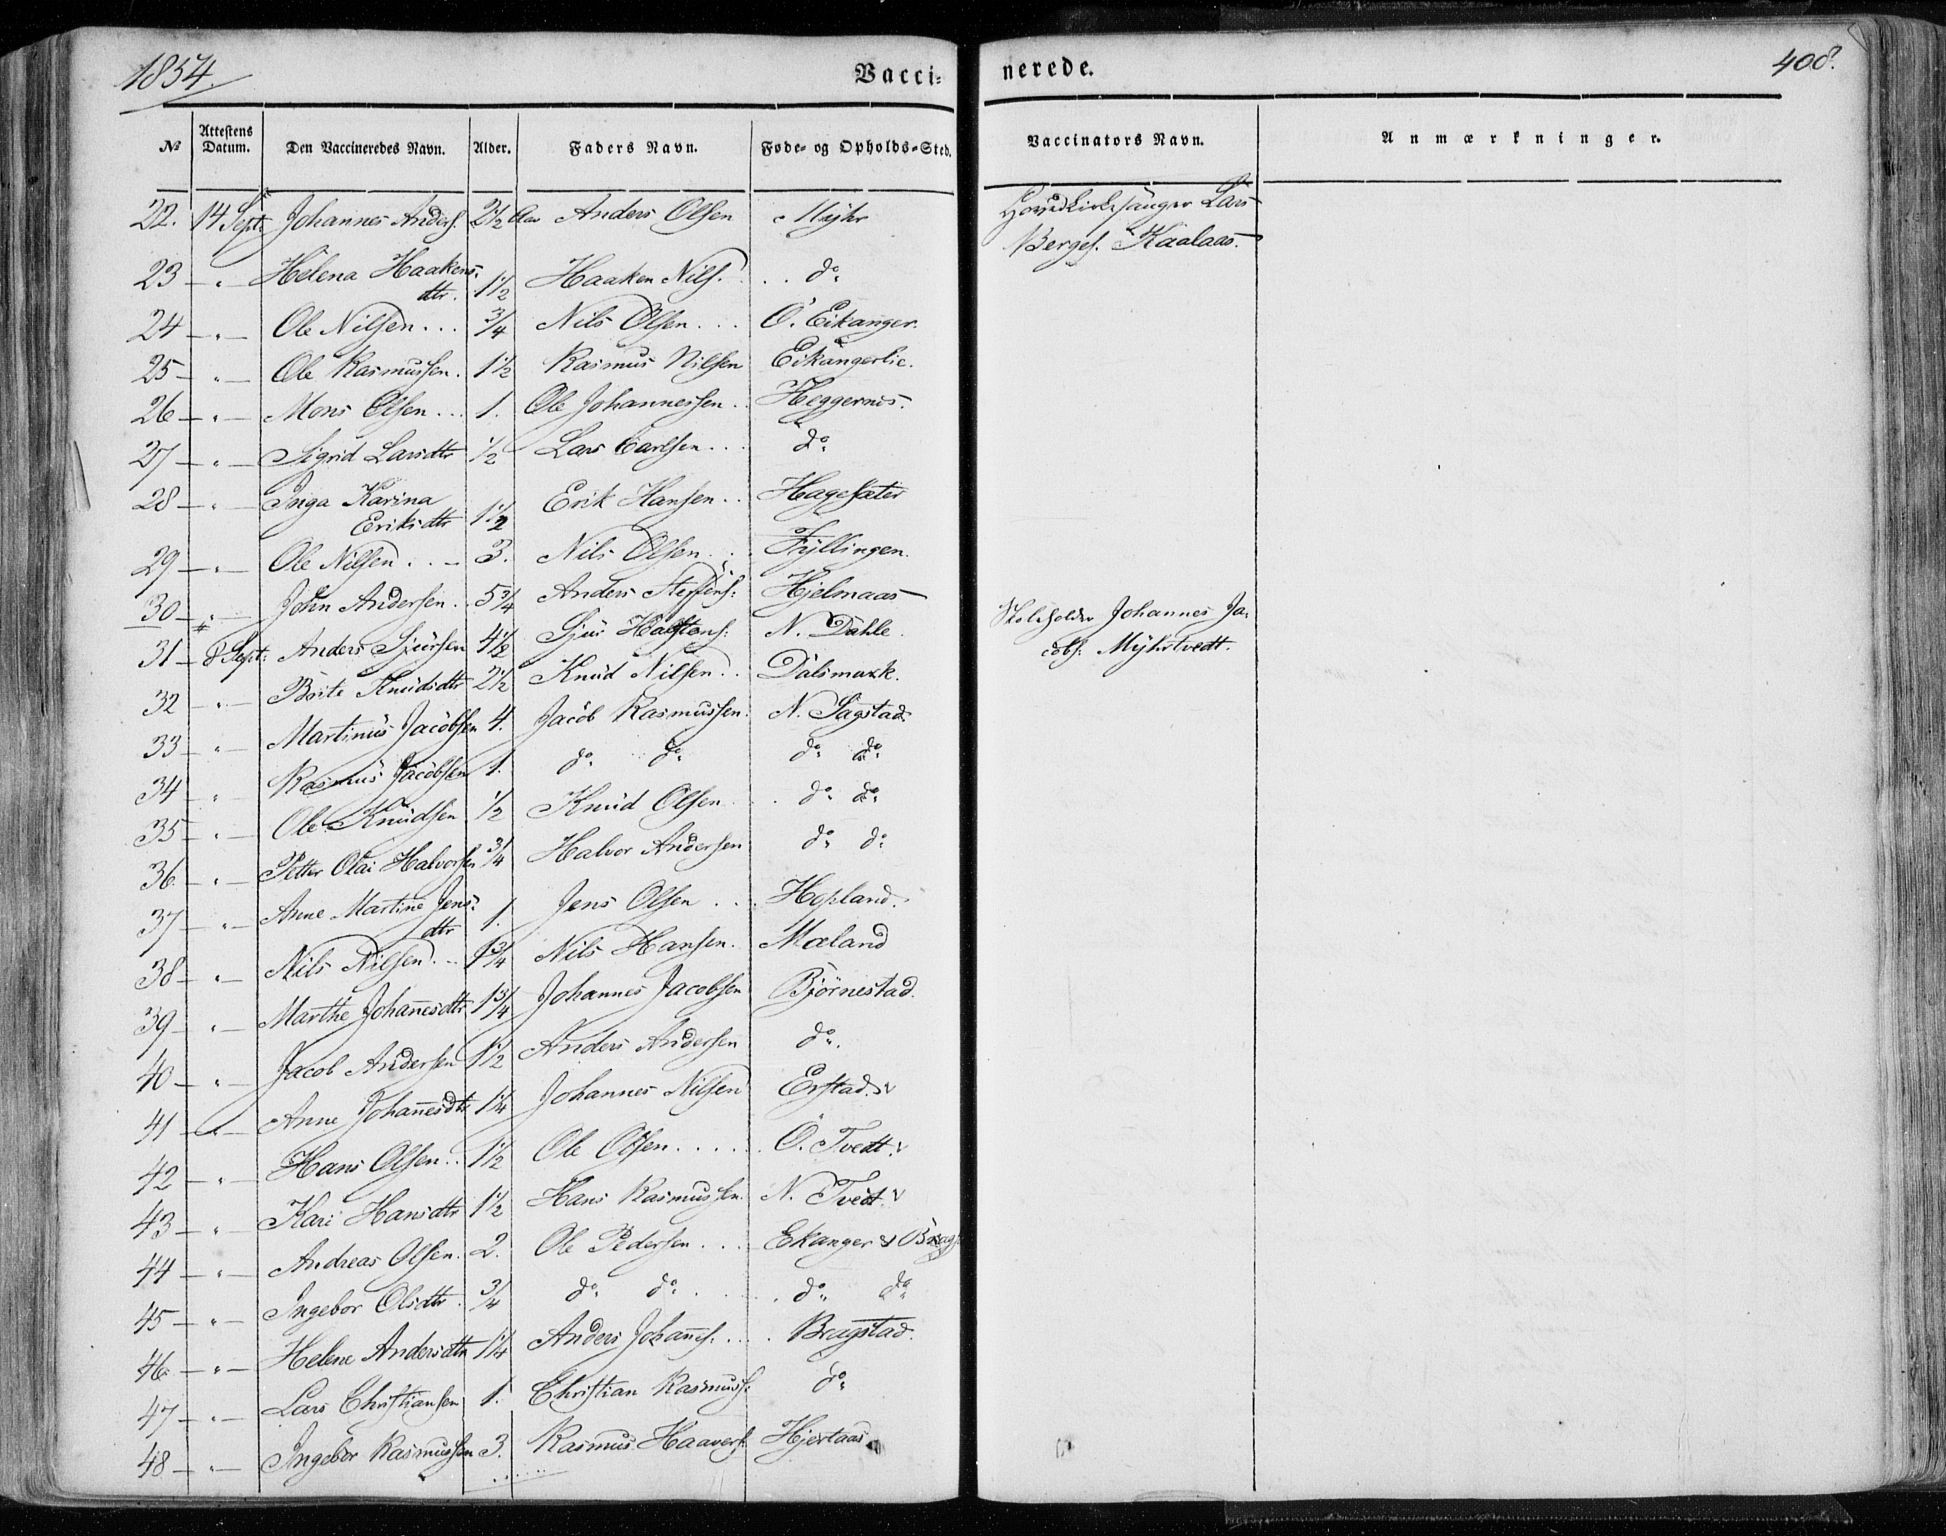 1854.
Vacci-
nerede.
408.
No
Attestens Datum.
Den Vaccineredes Navn.
Alder.
Faders Navn.
Føde- og Opholds-Sted.
Vaccinators Navn.
Anmærkninger.
22. 14 Sept: Johannes Anders. 2 1/2 Aar Anders Olsen Myhr Lars
Bergs. Kaalaas.
23 - " - Helena Haakens-
dtr. 1 1/2 Haaken Nils. do
24 - " - Ole Nilsen... 3/4 Nils Olsen... O. Eikanger.
25 - " - Ole Rasmussen. 1 1/2 Rasmus Nilsen Eikangerlie.
26 - " - Mons Olsen... 1. Ole Johannessen.. Heggernes.
27 - " - Sigrid Larsdtr 1/2 Lars Carlsen... do
28 - " - Inga Karina
Eriksdtr 1 1/2 Erik Hansen.. Hagesæter
29 - " - Ole Nilsen... 3. Nils Olsen... Fyllingen.
30 - " - John Andersen.. 5 3/4 Anders Steffens: Hjelmaas
31 - 8 Sept: Anders Sjursen 4 1/2 Sjur N. Dahle. Skoleholder Johannes Ja-
cobs. Myhrtvedt.
32 - " - Brite Knudsdtr 2 1/2 Knud Nilsen.. Dalsmark.
33 - " - Martinus Jacobsen 4. Jacob Rasmussen. N. Sagstad.
34 - " - Rasmus Jacobsen 1. do do do do
35 - " - Ole Knudsen 1/2 Knud Olsen. do do
36 - " - Petter Olai Halvorsen 3/4 Halvor Andersen do do
37 - " - Anne Martine Jens-
dtr 1. Jens Olsen.. Hopland.
38 - " - Nils Nilsen.. 1 3/4 Nils Hansen. Mæland
39 - " - Marthe Johanesdtr 1 3/4 Johannes Jacobsen Bjørnestad.
40 - " - Jacob Andersen 1 1/2 Anders Andersen do.
41 - " - Anne Johanesdtr 1 1/4 Johannes Nilsen Erstad.
42 - " - Hans Olsen.. 1 1/2 Ole Olsen..... O. Tvedt.
43 - " - Kari Hansdtr 1 1/2 Hans Rasmussen. N. Tvedt.
44 - " - Andreas Olsen. 2. Ole Pedersen... Ekanger
45 - " - Ingebor Olsdtr. 3/4 do do do do
46 - " - Helene Andersdtr 1 1/4 Anders Johanes.... Bragstad.
47 - " - Lars Christiansen 1. Christian Rasmuss: do
48 - " - Ingebor Rasmussen 3. Rasmus Haavers. Hjertaas